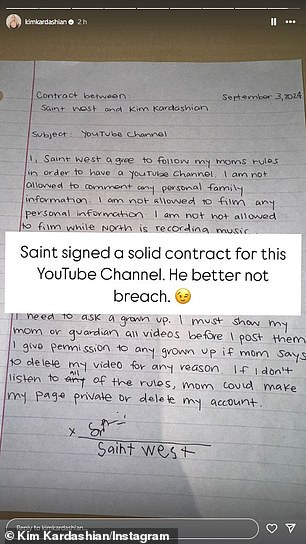 kimkardashian 2 h
Contract between:
September 3, 2024
Saint West and Kim Kardashian
Subject: YouTube Channel
I, Saint West agree to follow my moms rules
in order to have a YouTube Channel. I am not
allowed to comment any personal family
information. I am not allowed to film any
personal information. I am not hot allowed
to film while North is recording music.
Saint signed a solid contract for this
YouTube Channel. He better not
breach. 😉
I need to ask a grown up. I must show my
mom or guardian all videos before I post them
I give permission to any grown up if mom says
to delete my video for any reason. If I don't
listen to all any of the rules, mom could make
my page private or delete my account.
x
Saint West
Reply to kimkardashian...
© Kim Kardashian/Instagram